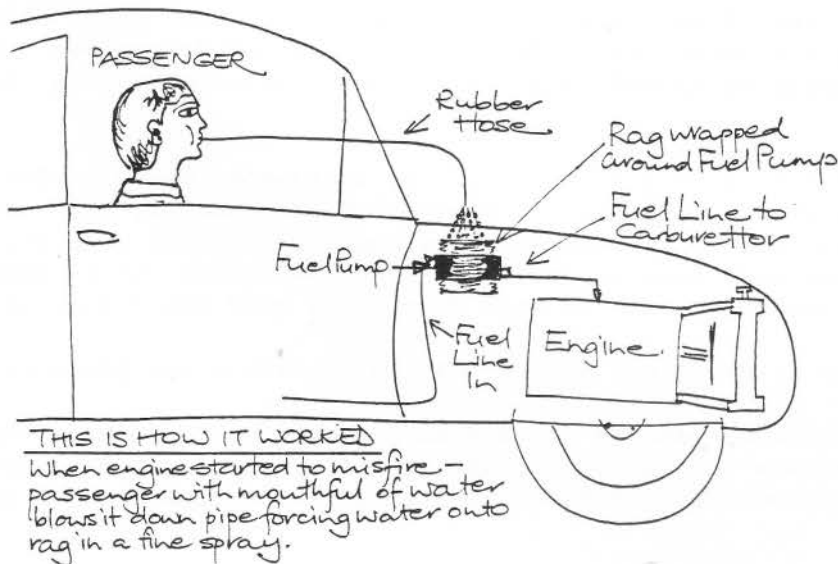 PASSENGER
Rubber
Hose
Rag wrapped
around Fuel Pump
Fuel Line to
Carburettor
Fuel Pump
Fuel
Line
In
Engine.
THIS IS HOW IT WORKED
When engine started to misfire -
passenger with mouthful of water
blows it down pipe forcing water onto
rag in a fine spray.